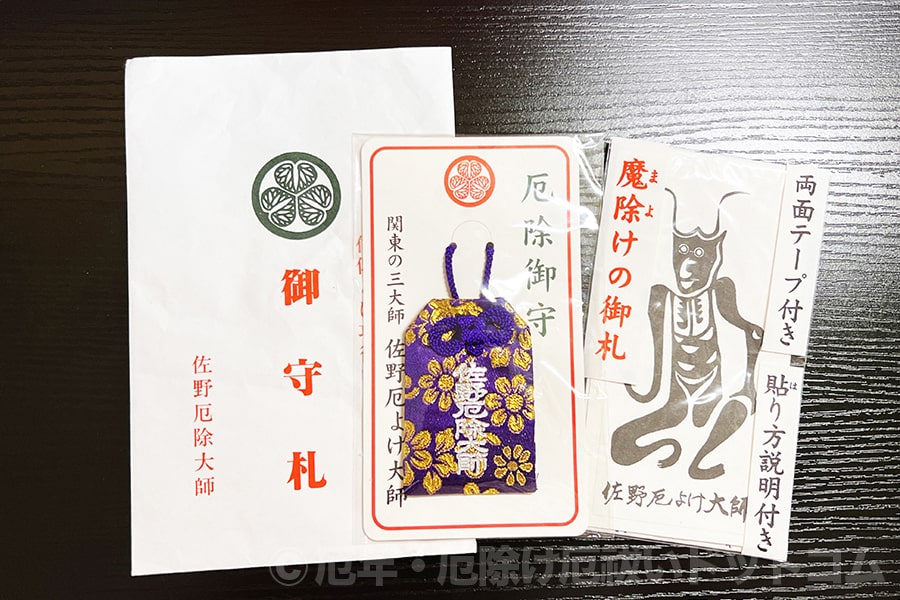 御守札
佐野厄除大師
厄除御守
関東の三大師 佐野厄よけ大師
佐野厄除大師
魔除けの御札
まよ
佐野厄よけ大師
両面テープ付き
貼り方説明付き
は
©厄年・厄除け厄祓いドットコム